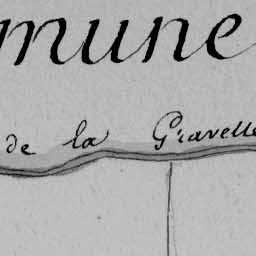 mune
de la Gravelle